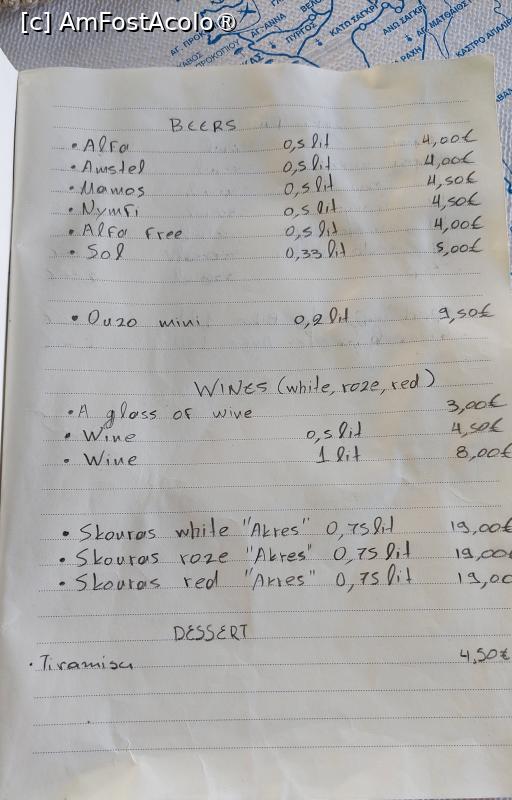 [c] AmFostAcolo®
ΑΓ. ΠΡΟΚΟΠΙΟΥ
ΑΓ. ΑΝΝΑ
ΠΥΡΓΟΣ
ΚΑΤΩ ΣΑΓΚΡΙ
ΑΝΩ ΣΑΓΚΡΙ
ΚΑΣΤΡΟ ΑΠΑΛΙΡ
BEERS
• Alfa 0,5 lit 4,00€
• Amstel 0,5 lit 4,00€
• Mamos 0,5 lit 4,50€
• Nymfi 0,5 lit 4,50€
• Alfa free 0,5 lit 4,00€
• Sol 0,33 lit 5,00€
• Ouzo mini 0,2 lit 9,50€
WINES (white, roze, red)
• A glass of wine 3,00€
• Wine 0,5 lit 4,50€
• Wine 1 lit 8,00€
• Skouras white "Akres" 0,75 lit 19,00€
• Skouras roze "Akres" 0,75 lit 19,00€
• Skouras red "Akres" 0,75 lit 19,00
DESSERT
• Tiramisu 4,50€